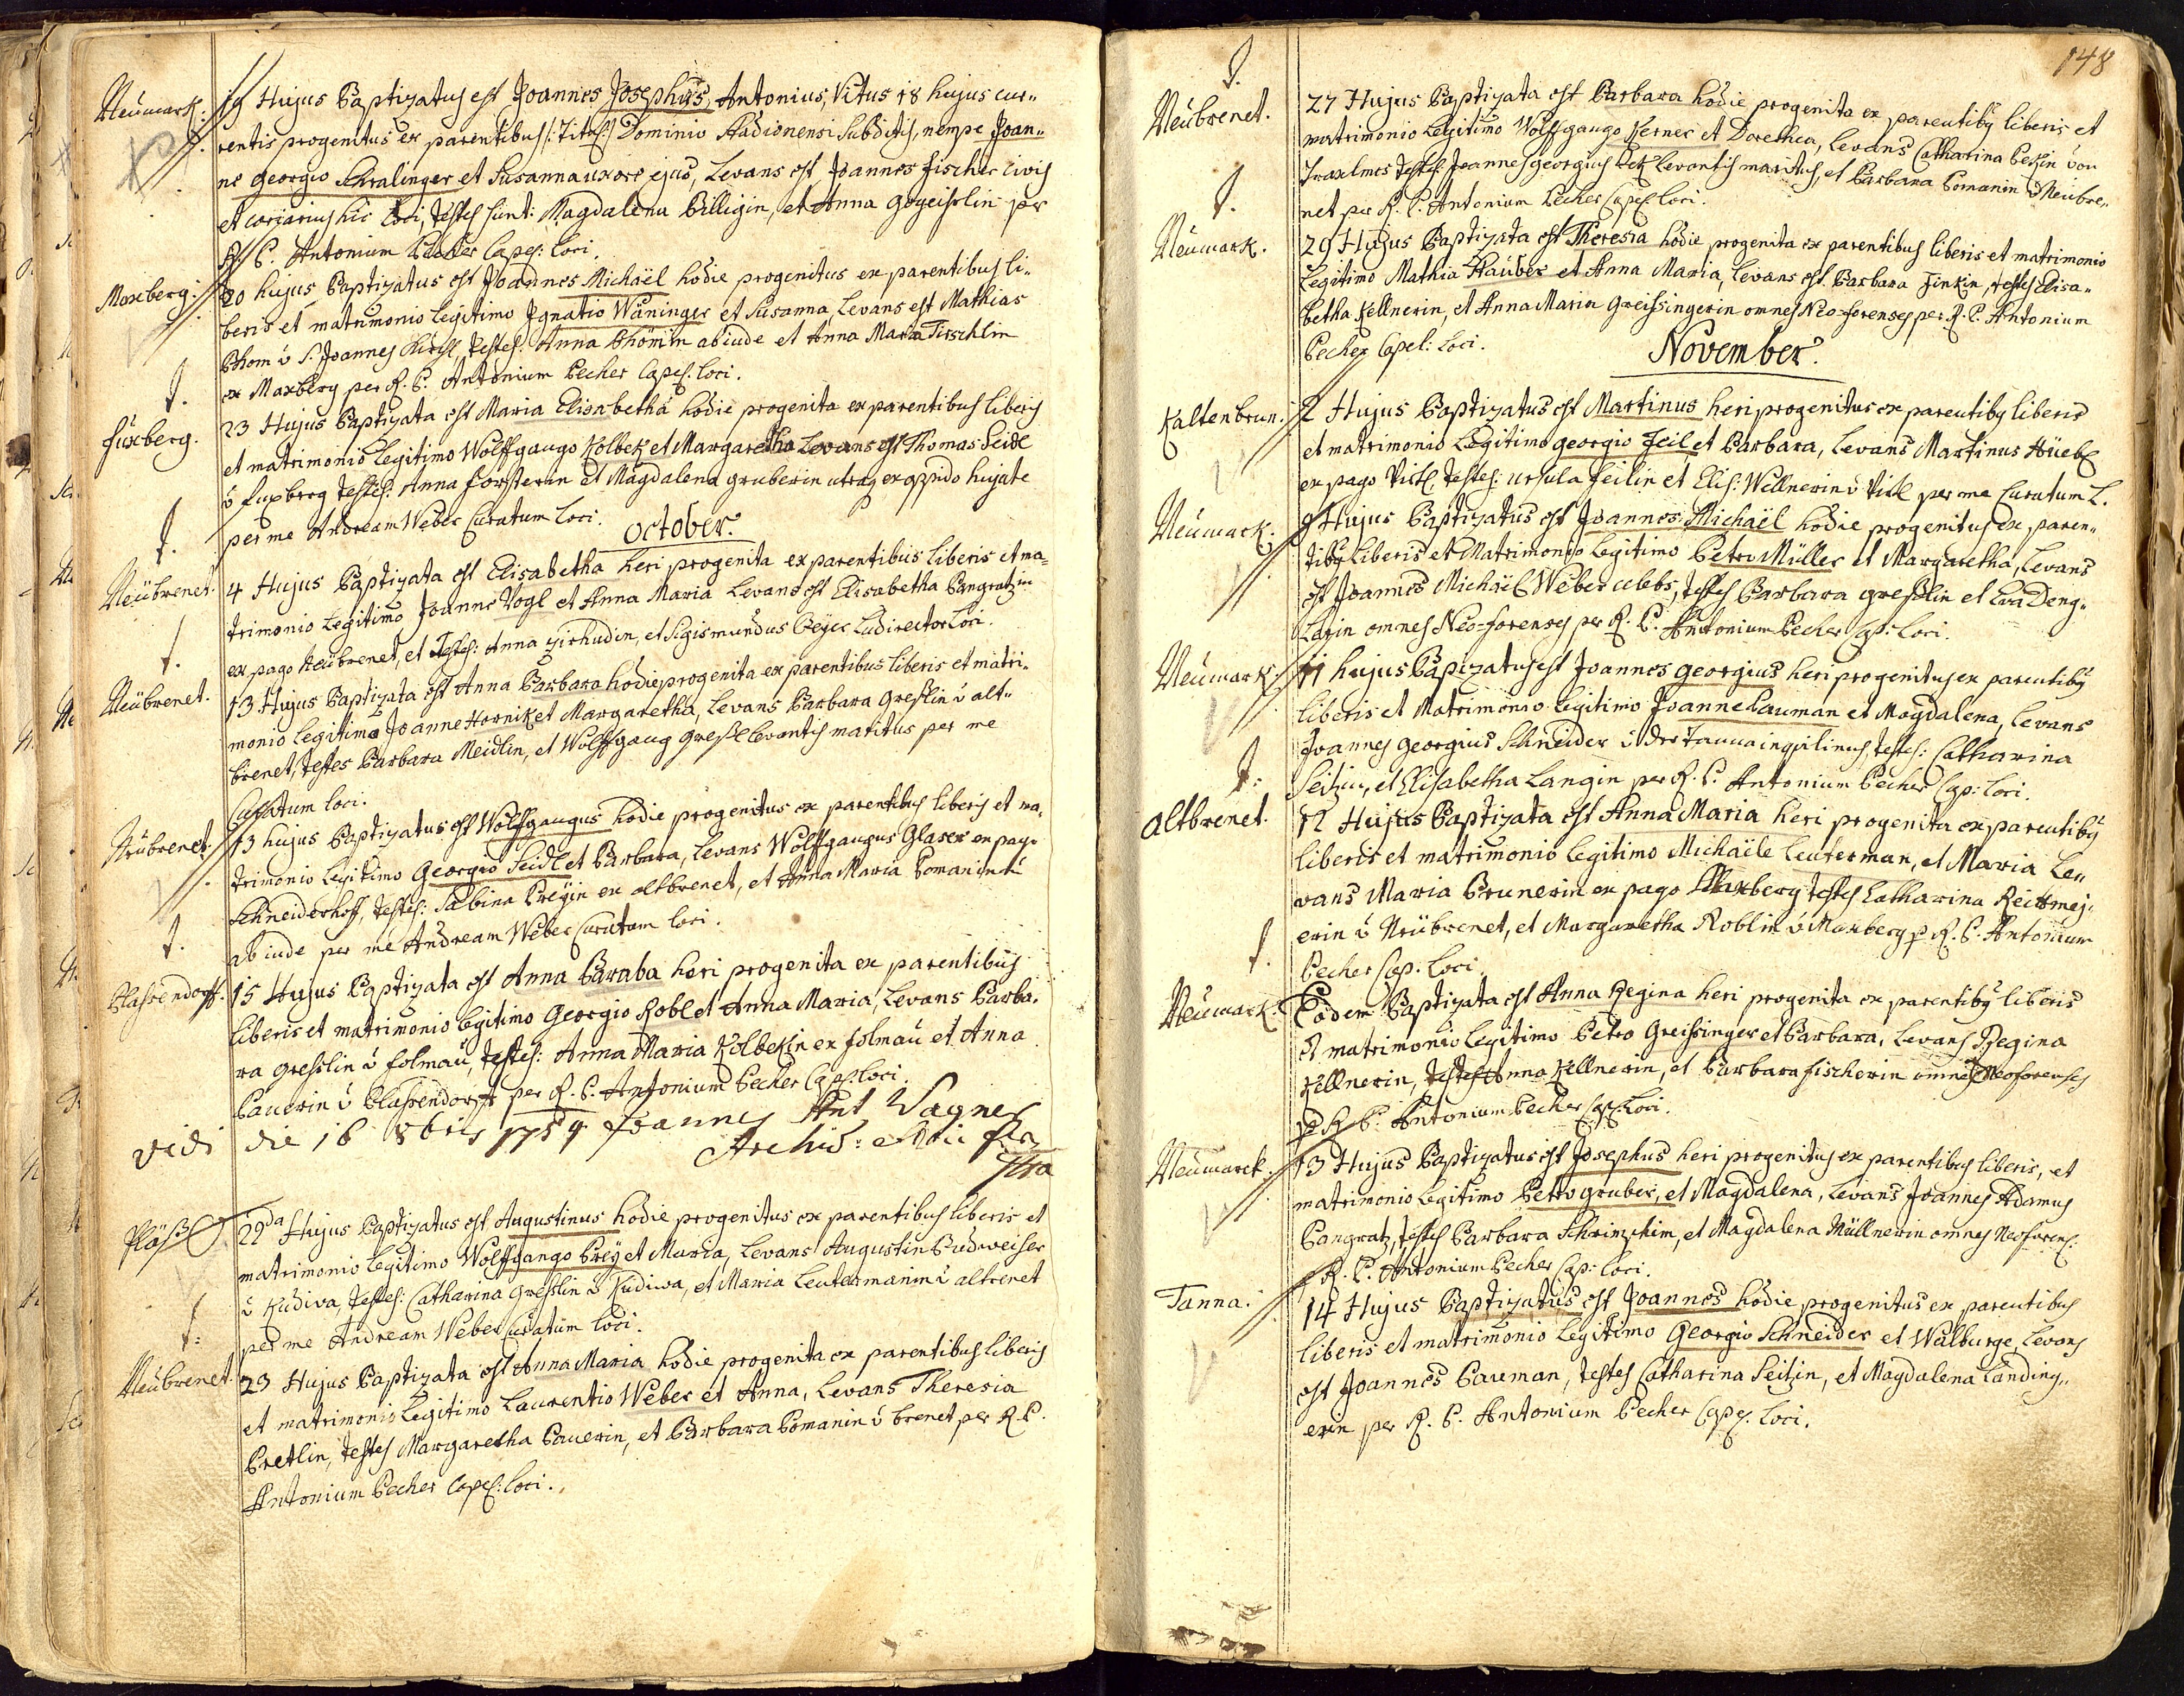 Neumark. 19 Hujus Baptizatus est Joannes Josephus, Antonius, Vitus 18 hujus cur„
rentis progenitus ex parentibus /: Titul :/ Dominio Stadionensi Subditis, nempe Joan„
ne Georgio Schralinger et Susanna uxore ejus, Levans est Joannes Fischer civis
et coriarius hic loci, testes sunt: Magdalena Billigin, et Anna per
R. P. Antonium Pecher Capel: loci.
Maxberg. 20 hujus Baptizatus est Joannes Michaël hodie progenitus ex parentibus li„
beris et matrimonio legitimo Ignatio Wäninger et Susanna, Levans est Mathias
Böhom v S. Joannes Testes: Anna Böhömin abinde et Anna Maria Tischlin
ex Maxberg per R. P. Antonium Pecher Capel. loci.
f.
Fuxberg. 23 Hujus Baptizata est Maria Elisabetha hodie progenita ex parentibus liberis
et matrimonio legitimo Wolffgango Kolbek et Margaretha Levans est Thomas Seidl
v Fuxberg testes: Anna Forsterin et Magdalena Gruberin utraq ex oppido hujate
per me Andream Weber Curatum loci.
October.
f.
Neubrenet. 4 Hujus Baptizata est Elisabetha heri progenita ex parentibus liberis et ma„
trimonio legitimo Joanne Vogl et Anna Maria Levans est Elisabetha Pangratzin
ex pago Neubrenet, et Testes: Anna Zirhudin, et Sigismundus Beyer Ludirector loci.
f.
Neubrenet. 13 Hujus Baptizata est Anna Barbara hodie progenita ex parentibus liberis et matri„
monio legitimo Joanne Hornik et Margaretha, Levans Barbara Greßlin v alt„
brenet, testes Barbara Meidlin, et Wolffgang Greßl levantis maritus per me
Curatum loci.
Neubrenet. 13 hujus Baptizatus est Wolffgangus hodie progenitus ex parentibus liberis et ma„
trimonio legitimo Georgio Seidl et Barbara, Levans Wolffgangus Glaser ex pago
Schneiderhoff, testes: Sabina Preyin ex altbrenet, et Anna Maria Pomanin
abinde per me Andream Weber Curatum loci.
f.
Plassendorff. 15 Hujus Baptizata est Anna Baraba heri progenita ex parentibus
liberis et matrimonio legitimo Georgio Robl et Anna Maria, Levans Barba„
ra Gresslin v Folmau, testes: Anna Maria Kolbekin ex Folmau et Anna
Pauerin v Plassendorff per R. P. Antonium Pecher Capel: loci.
vidi die 16 8bris 1754 Joannes Ant Wagner
Archid:
Pläßl 22da Hujus Baptizatus est Augustinus hodie progenitus ex parentibus liberis et
matrimonio legitimo Wolffgango Prey et Maria, Levans Augustin Budweiser
v Kudiwa, testes: Catharina Greßlin v Kudiwa, et Maria Leutermanin v altrenet
per me Andream Weber Curatum loci.
f.
Neubrenet. 23 Hujus Baptizata est Anna Maria hodie progenita ex parentibus liberis
et matrimonio legitimo Laurentio Weber et Anna, Levans Theresia
Bretlin, testes Margaretha Pauerin, et Barbara Pomanin v brenet per R. P.
Antonium Pecher Capel: loci.
148
f.
Neubrenet. 27 Hujus Baptizata est Barbara hodie progenita ex parentiby liberis et
matrimonio legitimo Wolffgango Kerner et Dorethea, Levans Catharina Pekin von
testes Joannes Georgius Pek levantis maritus, et Barbara Pomanin v Neubre„
net per R. P. Antonium Pecher Capel loci.
f.
Neumark. 29 Hujus Baptizata est Theresia hodie progenita ex parentibus liberis et matrimonio
legitimo Mathia Stauber et Anna Maria, Levans est Barbara Finkin, testes Elisa„
betha Kellnerin, et Anna Maria Greissingerin omnes Neo-forenses per R. P. Antonium
Pecher Capel: loci.
November.
Kaltenbrun. 2 Hujus Baptizatus est Martinus heri progenitus ex parentiby liberis
et matrimonio legitimo Georgio Feil et Barbara, Levans Martinus Hüebl
ex pago Viertl. testes: Ursula Feilin et Elis: Wellnerin v per me Curatum L.
Neumark. 9 Hujus Baptizatus est Joannes Michaël hodie progenitus ex paren„
tiby liberis et Matrimonio legitimo Petro Müller et Margaretha, Levans
est Joannes Michaël Weber celebs, testes Barbara Greßlin et Eva Deng„
Larin omnes Neo-forenses per R. P. Antonium Pecher Cap: loci.
Neumark. 11 hujus Baptizatus est Joannes Georgius heri progenitus ex parentiby
liberis et Matrimonio legitimo Joanne Pauman et Magdalena, Levans
Joannes Georgius Schneider v der Tanna inquilinus, testes: Catharina
Seitzin, et Elisabetha Langin per R. P. Antonium Pecher Cap: loci.
f.
Altbrenet. 12 Hujus Baptizata est Anna Maria heri progenita ex parentiby
liberis et matrimonio legitimo Michaële Leuterman, et Maria Le„
vans Maria Brunerin ex pago Maxberg testes Catharina Reitmej„
erin v Neubrenet, et Margaretha Roblin v Maxberg p R. P. Antonium
Pecher Cap. loci.
f.
Neumark. Eodem Baptizata est Anna Regina heri progenita ex parentiby liberis
et matrimonio legitimo Petro Greissinger et Barbara, Levans Regina
Kellnerin, testes Anna Kellnerin, et Barbara Fischerin omnes Neoforenses
p R. P. Antonium Pecher Cap: loci.
Neumarck. 13 Hujus Baptizatus est Josephus heri progenitus ex parentibus liberis, et
matrimonio legitimo Petro Gruber, et Magdalena, Levans Joannes Adamus
Pangratz, testes Barbara et Magdalena Müllnerin omnes Neoforens:
p R. P. Antonium Pecher Cap: loci.
Tanna. 14 Hujus Baptizatus est Joannes hodie progenitus ex parentibus
liberis et matrimonio legitimo Georgio Schneider et Walburge, Levans
est Joannes Pauman, testes Catharina Seitzin, et Magdalena Landing„
erin per R. P. Antonium Pecher Capel. loci.